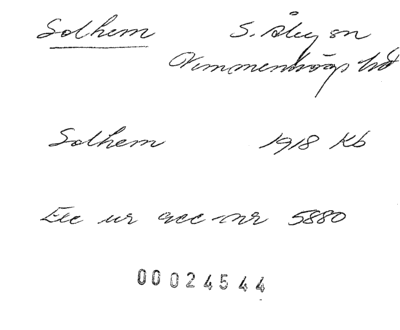 Solhem S. Åby sn
Vemmenhögs hd
Solhem 1918 Kb
Exc ur acc-nr 5880
00024544